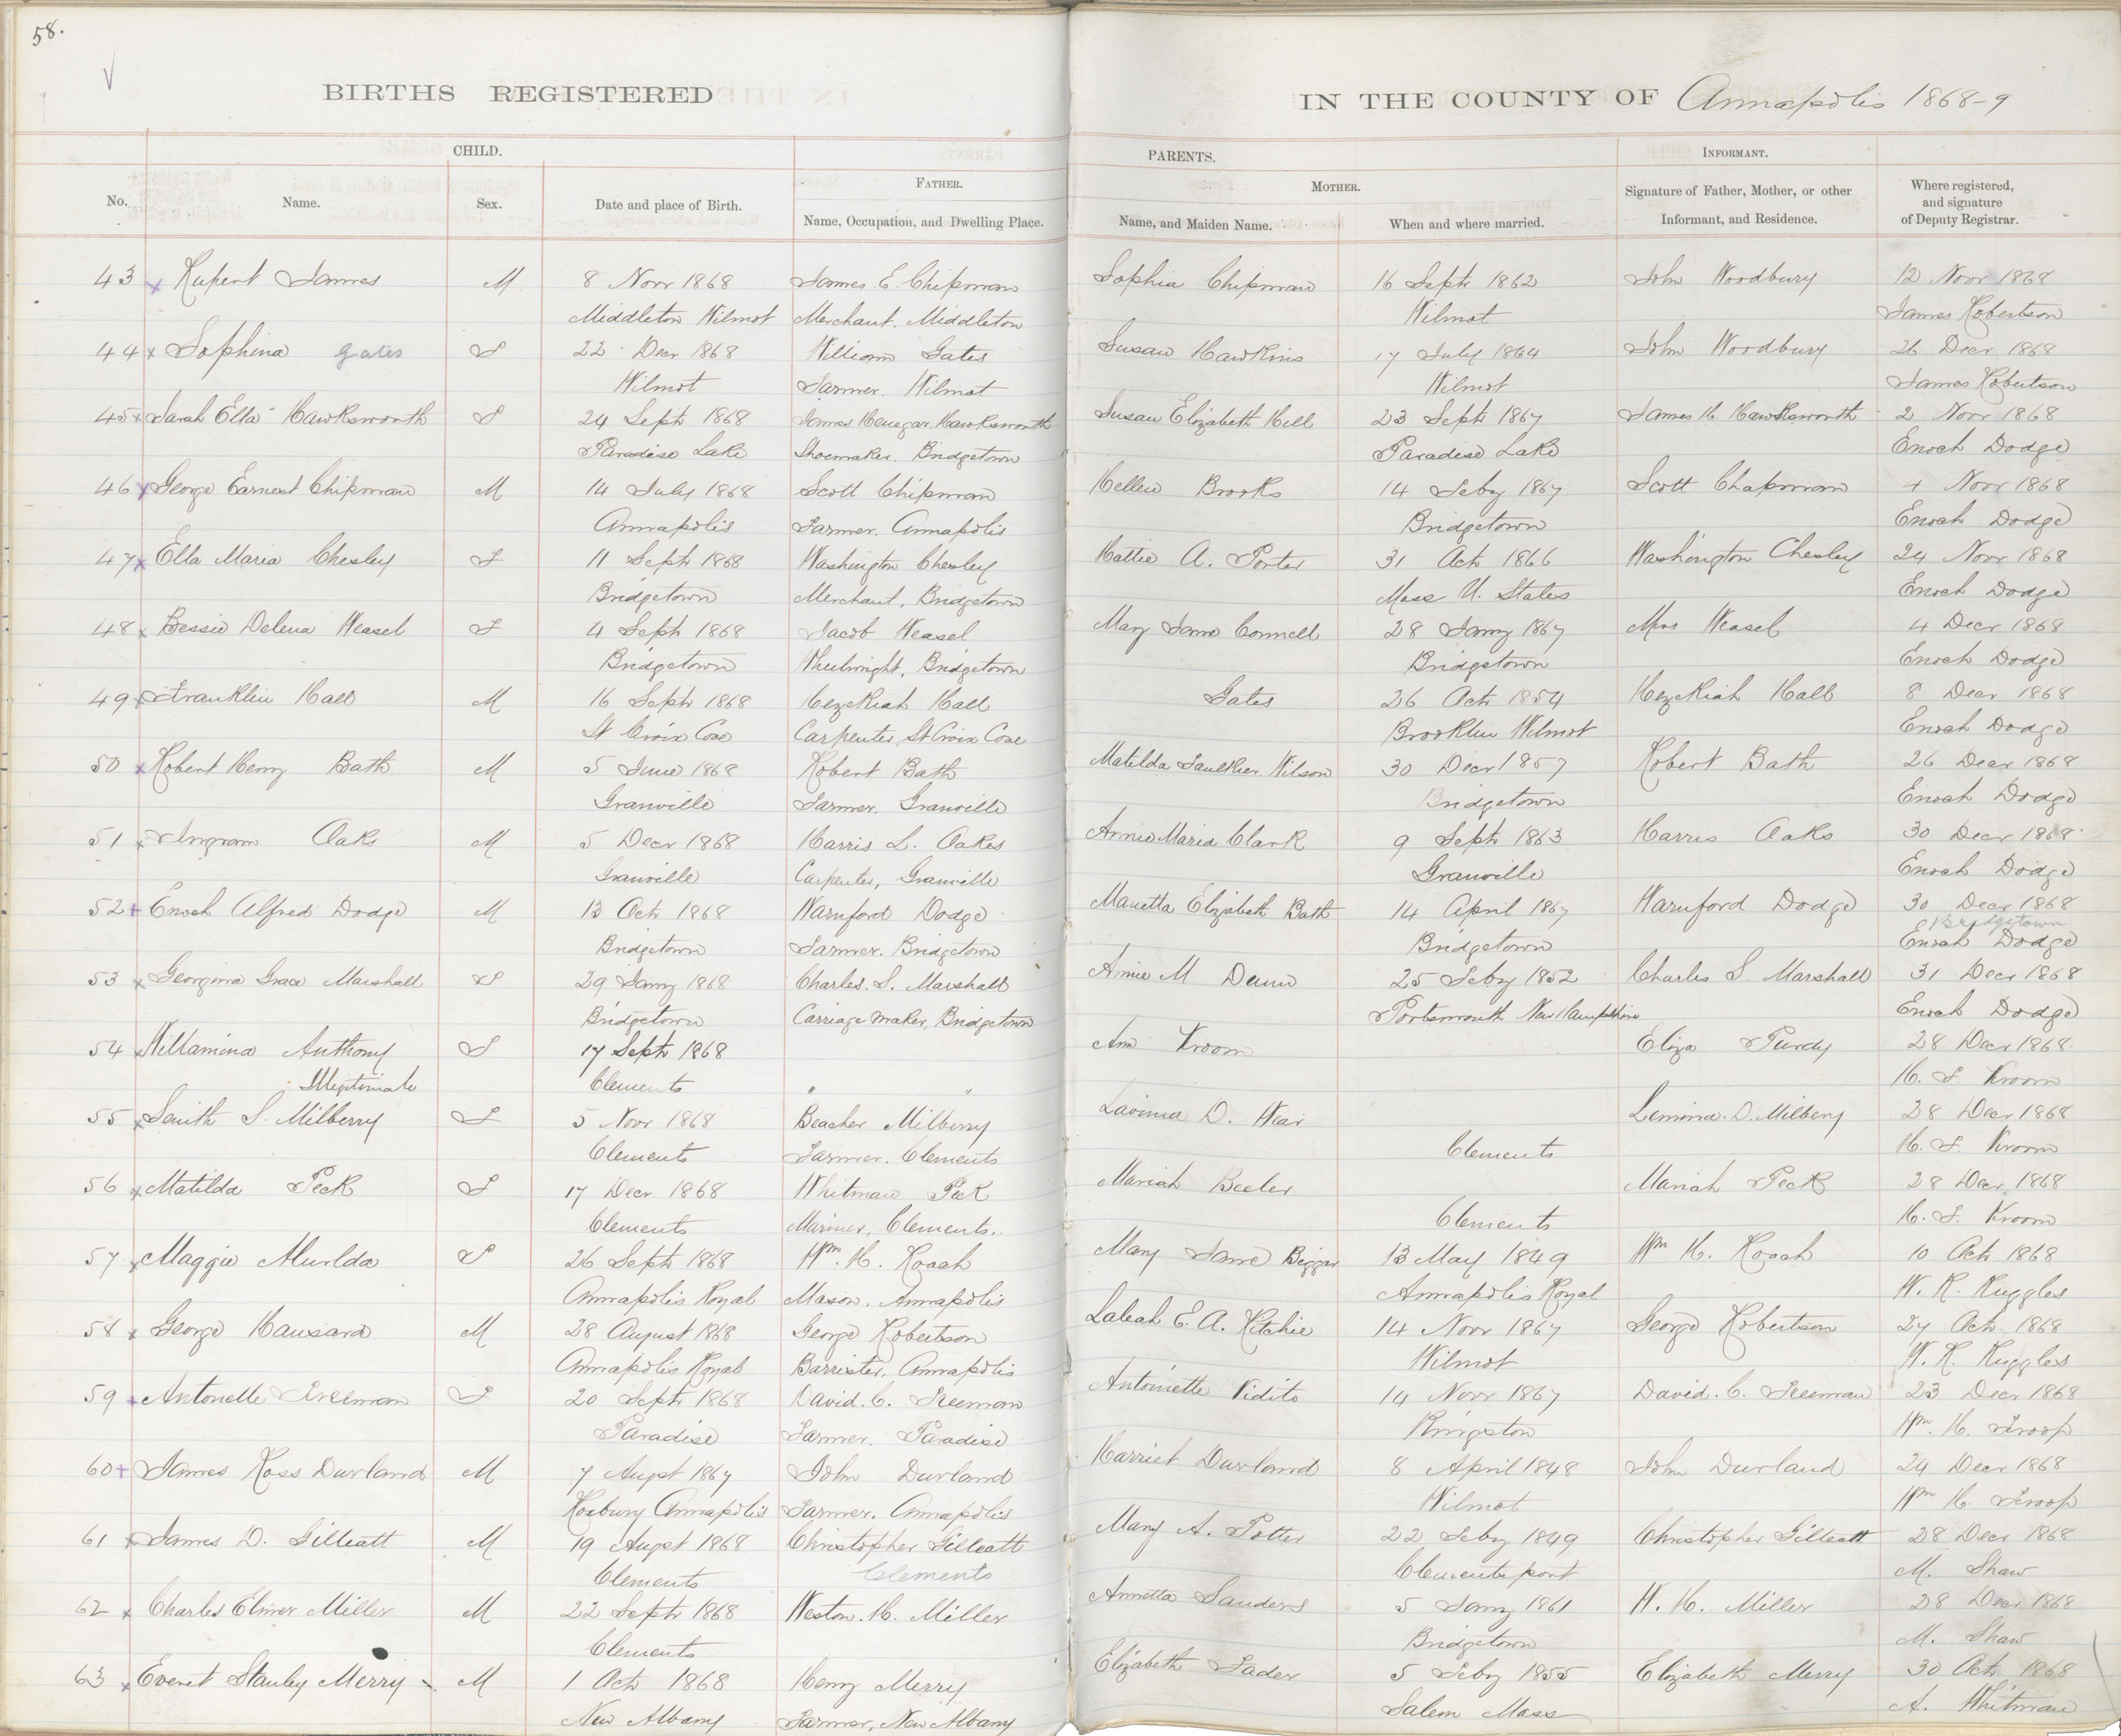 58.
BIRTHS REGISTERED
IN THE COUNTY OF Annapolis 1868-9
CHILD.
PARENTS.
INFORMANT.
No.
Name.
Sex.
Date and place of Birth.
FATHER.
Name, Occupation, and Dwelling Place.
MOTHER.
Name, and Maiden Name.
When and where married.
Signature of Father, Mother, or other
Informant, and Residence.
Where registered,
and signature
of Deputy Registrar.
43 x Rupert James M 8 Novr 1868 James E. Chipman Sophia Chipman 16 Septr 1862 John Woodbury 12 Novr 1868
Middleton Wilmot Merchant. Middleton Wilmot James Robertson
44 x Sophina Gates F 22 Decr 1868 William Gates Susan Hawkins 17 July 1864 John Woodbury 26 Decr 1868
Wilmot Farmer. Wilmot Wilmot James Robertson
45 x Sarah Ella Hawksworth F 24 Septr 1868 James Henegar Hawksworth Susan Elizabeth Hill 23 Septr 1867 James H. Hawksworth 2 Novr 1868
Paradise Lake Shoemaker. Bridgetown Paradise Lake Enoch Dodge
46 x George Earnest Chipman M 14 July 1868 Scott Chipman Hellen Brooks 14 Feby 1867 Scott Chapman Novr 1868
Annapolis Farmer. Annapolis Bridgetown Enoch Dodge
47 x Ella Maria Chesley F 11 Septr 1868 Washington Chesley Hattie A. Porter 31 Octr 1866 Washington Chesley 24 Novr 1868
Bridgetown Merchant, Bridgetown Mass U. States Enoch Dodge
48 x Bessie Delena Weasel F 4 Septr 1868 Jacob Weasel Mary Jane Connell 28 Jany 1867 Mrs Weasel 4 Decr 1868
Bridgetown Wheelwright, Bridgetown Bridgetown Enoch Dodge
49 x Franklin Hall M 16 Septr 1868 Hezekiah Hall Gates 26 Octr 1854 Hezekiah Hall 8 Decr 1868
St Croix Cove Carpenter, St Croix Cove Brooklin Wilmot Enoch Dodge
50 x Robert Henry Bath M 5 June 1868 Robert Bath Matilda Faulkner Wilson 30 Decr 1857 Robert Bath 26 Decr 1868
Granville Farmer. Granville Bridgetown Enoch Dodge
51 x Ingram Oaks M 5 Decr 1868 Harris L. Oakes Annie Maria Clark 9 Septr 1863 Harris Oaks 30 Decr 1868
Granville Carpenter, Granville Granville Enoch Dodge
52 + Enoch Alfred Dodge M 13 Octr 1868 Warnford Dodge Manetta Elizabeth Bath 14 April 1867 Warnford Dodge 30 Decr 1868
Bridgetown
Bridgetown Farmer. Bridgetown Bridgetown Enoch Dodge
53 x Georgina Grace Marshall F 29 Jany 1868 Charles. S. Marshall Annie M Dunn 25 Feby 1852 Charles S. Marshall 31 Decr 1868
Bridgetown Carriage maker, Bridgetown Portsmouth New Hampshire Enoch Dodge
54 x Willamina Anthony F 17 Septr 1868 Ann Vroom Eliza Purdy 28 Decr 1868
Illegitimate Clements " " H. F. Vroom
55 x Senith S. Milberry F 5 Novr 1868 Beacher Milberry Lavinia D. Wear 28 Decr 1868
Clements Farmer. Clements Clements H. F. Vroom
56 x Matilda Peck F 17 Decr 1868 Whitman Peck Mariah Beeler Mariah Peck 28 Decr 1868
Clements Mariner, Clements. Clements H. F. Vroom
57 x Maggie F 26 Septr 1868 Wm. H. Roach Mary Jane Biggar 13 May 1849 Wm H. Roach 10 Octr 1868
Annapolis Royal Mason. Annapolis Annapolis Royal W. R. Ruggles
58 x George Hansard M 28 August 1868 George Robertson Laleah E. A. Ritchie 14 Novr 1867 George Robertson 27 Octr 1868
Annapolis Royal Barrister, Annapolis Wilmot W. R. Ruggles
59 + Antonette Freeman F 20 Septr 1868 David. C. Freeman Antoinette Vidito 14 Novr 1867 David. C. Freeman 23 Decr 1868
Paradise Farmer. Paradise Kingston Wm. H. Troop
60 + James Ross Durland M 7 Augst 1867 John Durland Harriet Durland 8 April 1848 John Durland 24 Decr 1868
Roxbury Annapolis Farmer. Annapolis Wilmot Wm H. Troop
61 x James D. Gilleatt M 19 Augst 1868 Christopher Gilleatt Mary A. Potter 22 Feby 1849 Christopher Gilleatt 28 Decr 1868
Clements Clements Clementsport M. Shaw
62 x Charles Elmer Miller M 22 Septr 1868 Weston. H. Miller Annetta Sanders 5 Jany 1861 W. H. Miller 28 Decr 1868
Clements Bridgetown M. Shaw
63 x Everet Stanley Merry M 1 Octr 1868 Henry Merry Elizabeth Fader 5 Feby 1855 Elizabeth Merry 30 Octr 1868
New Albany Farmer, New Albany Salem Mass A. Whitman